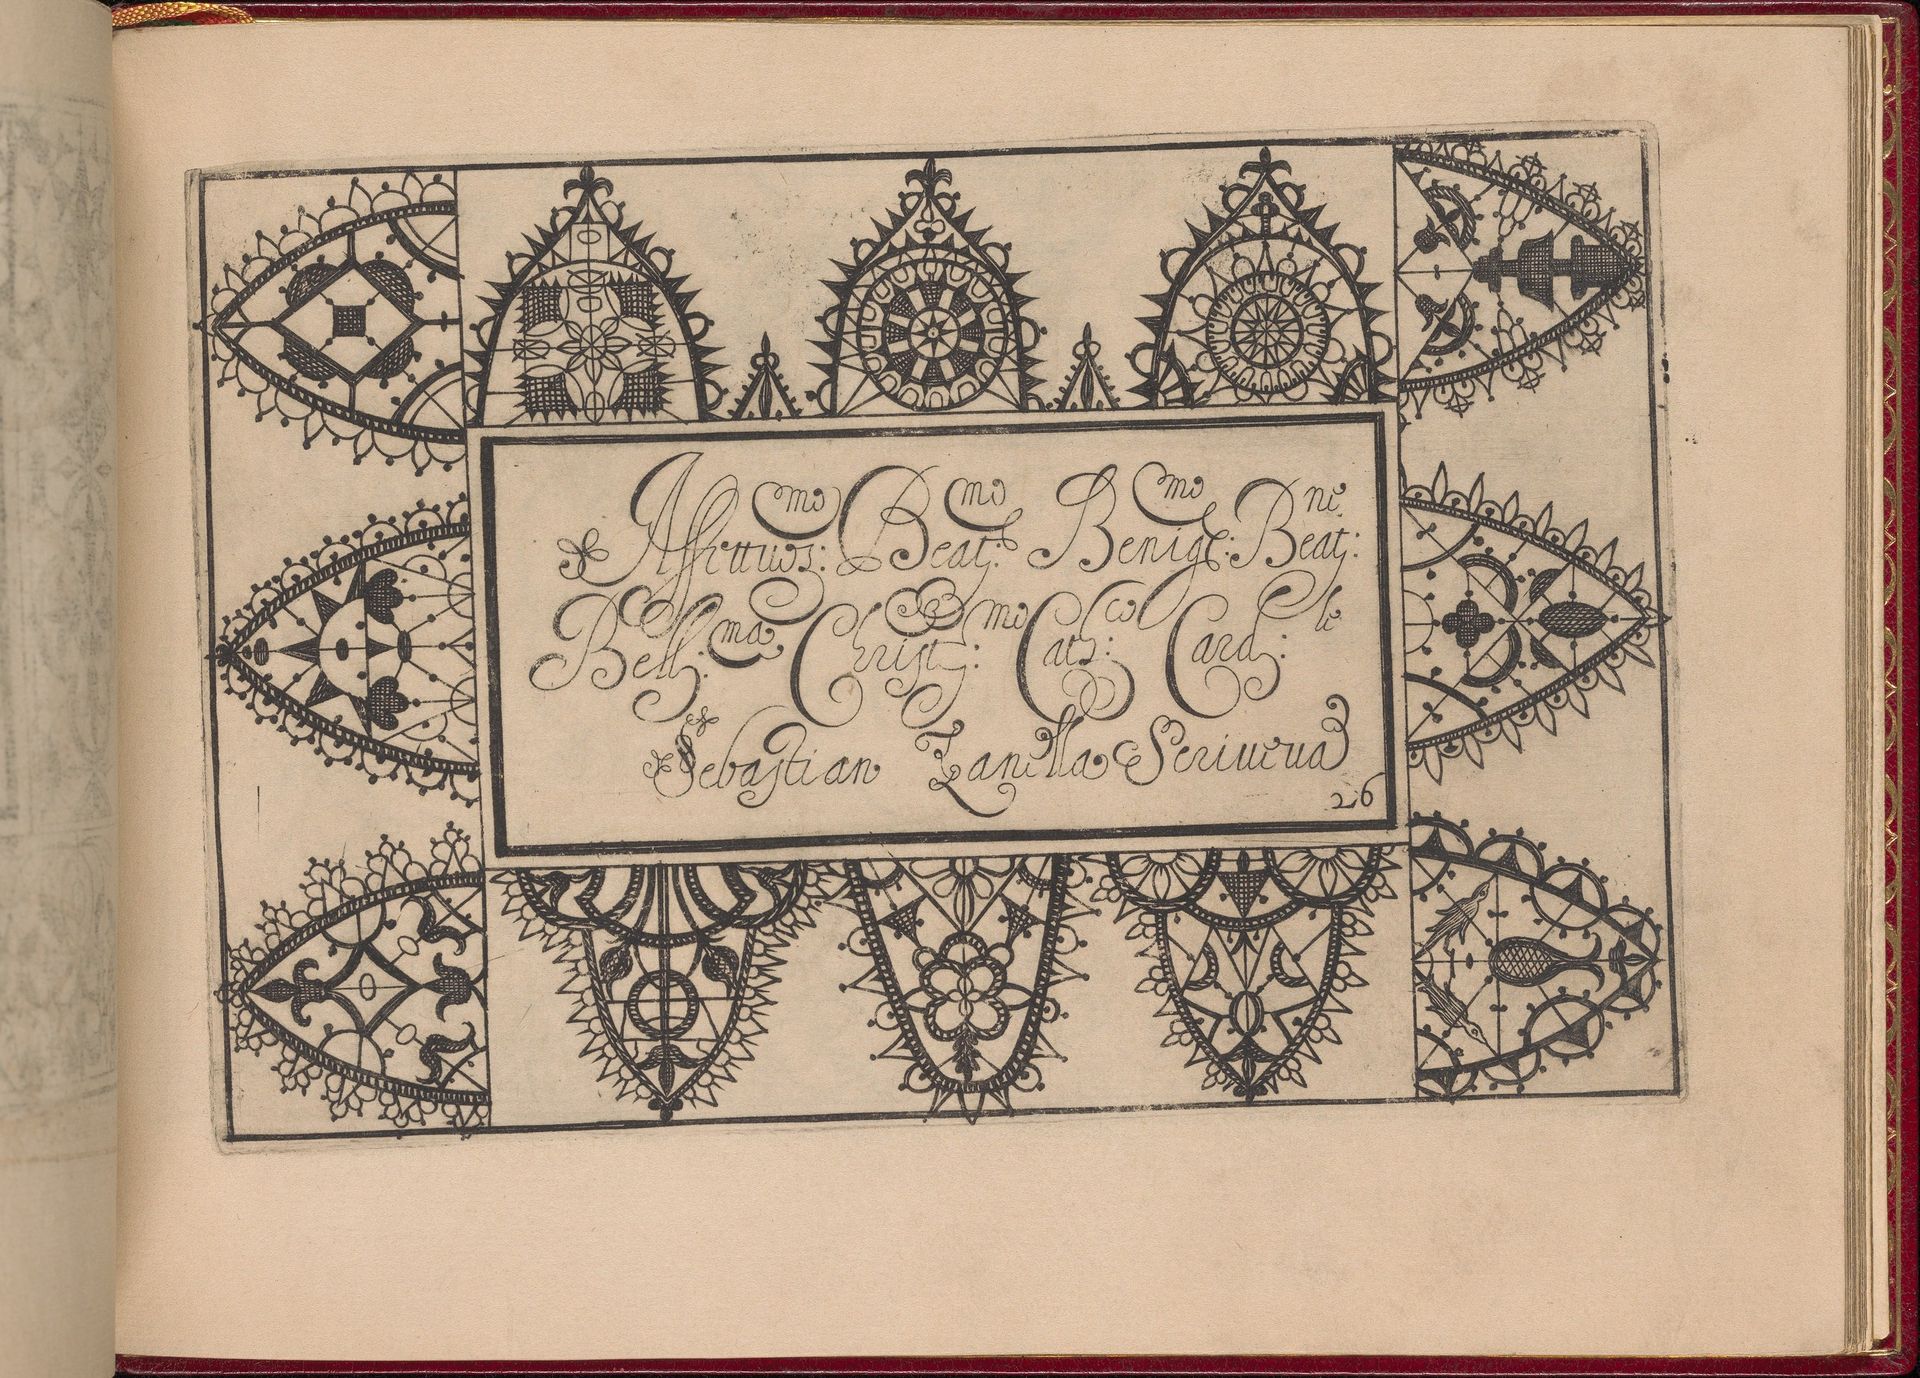 Affettuos:mo Beat:mo Benig:mo Beat:ne
Bell:ma Christ:mo Cat:co Card:le
Sebastian Zanella Scriveva
26